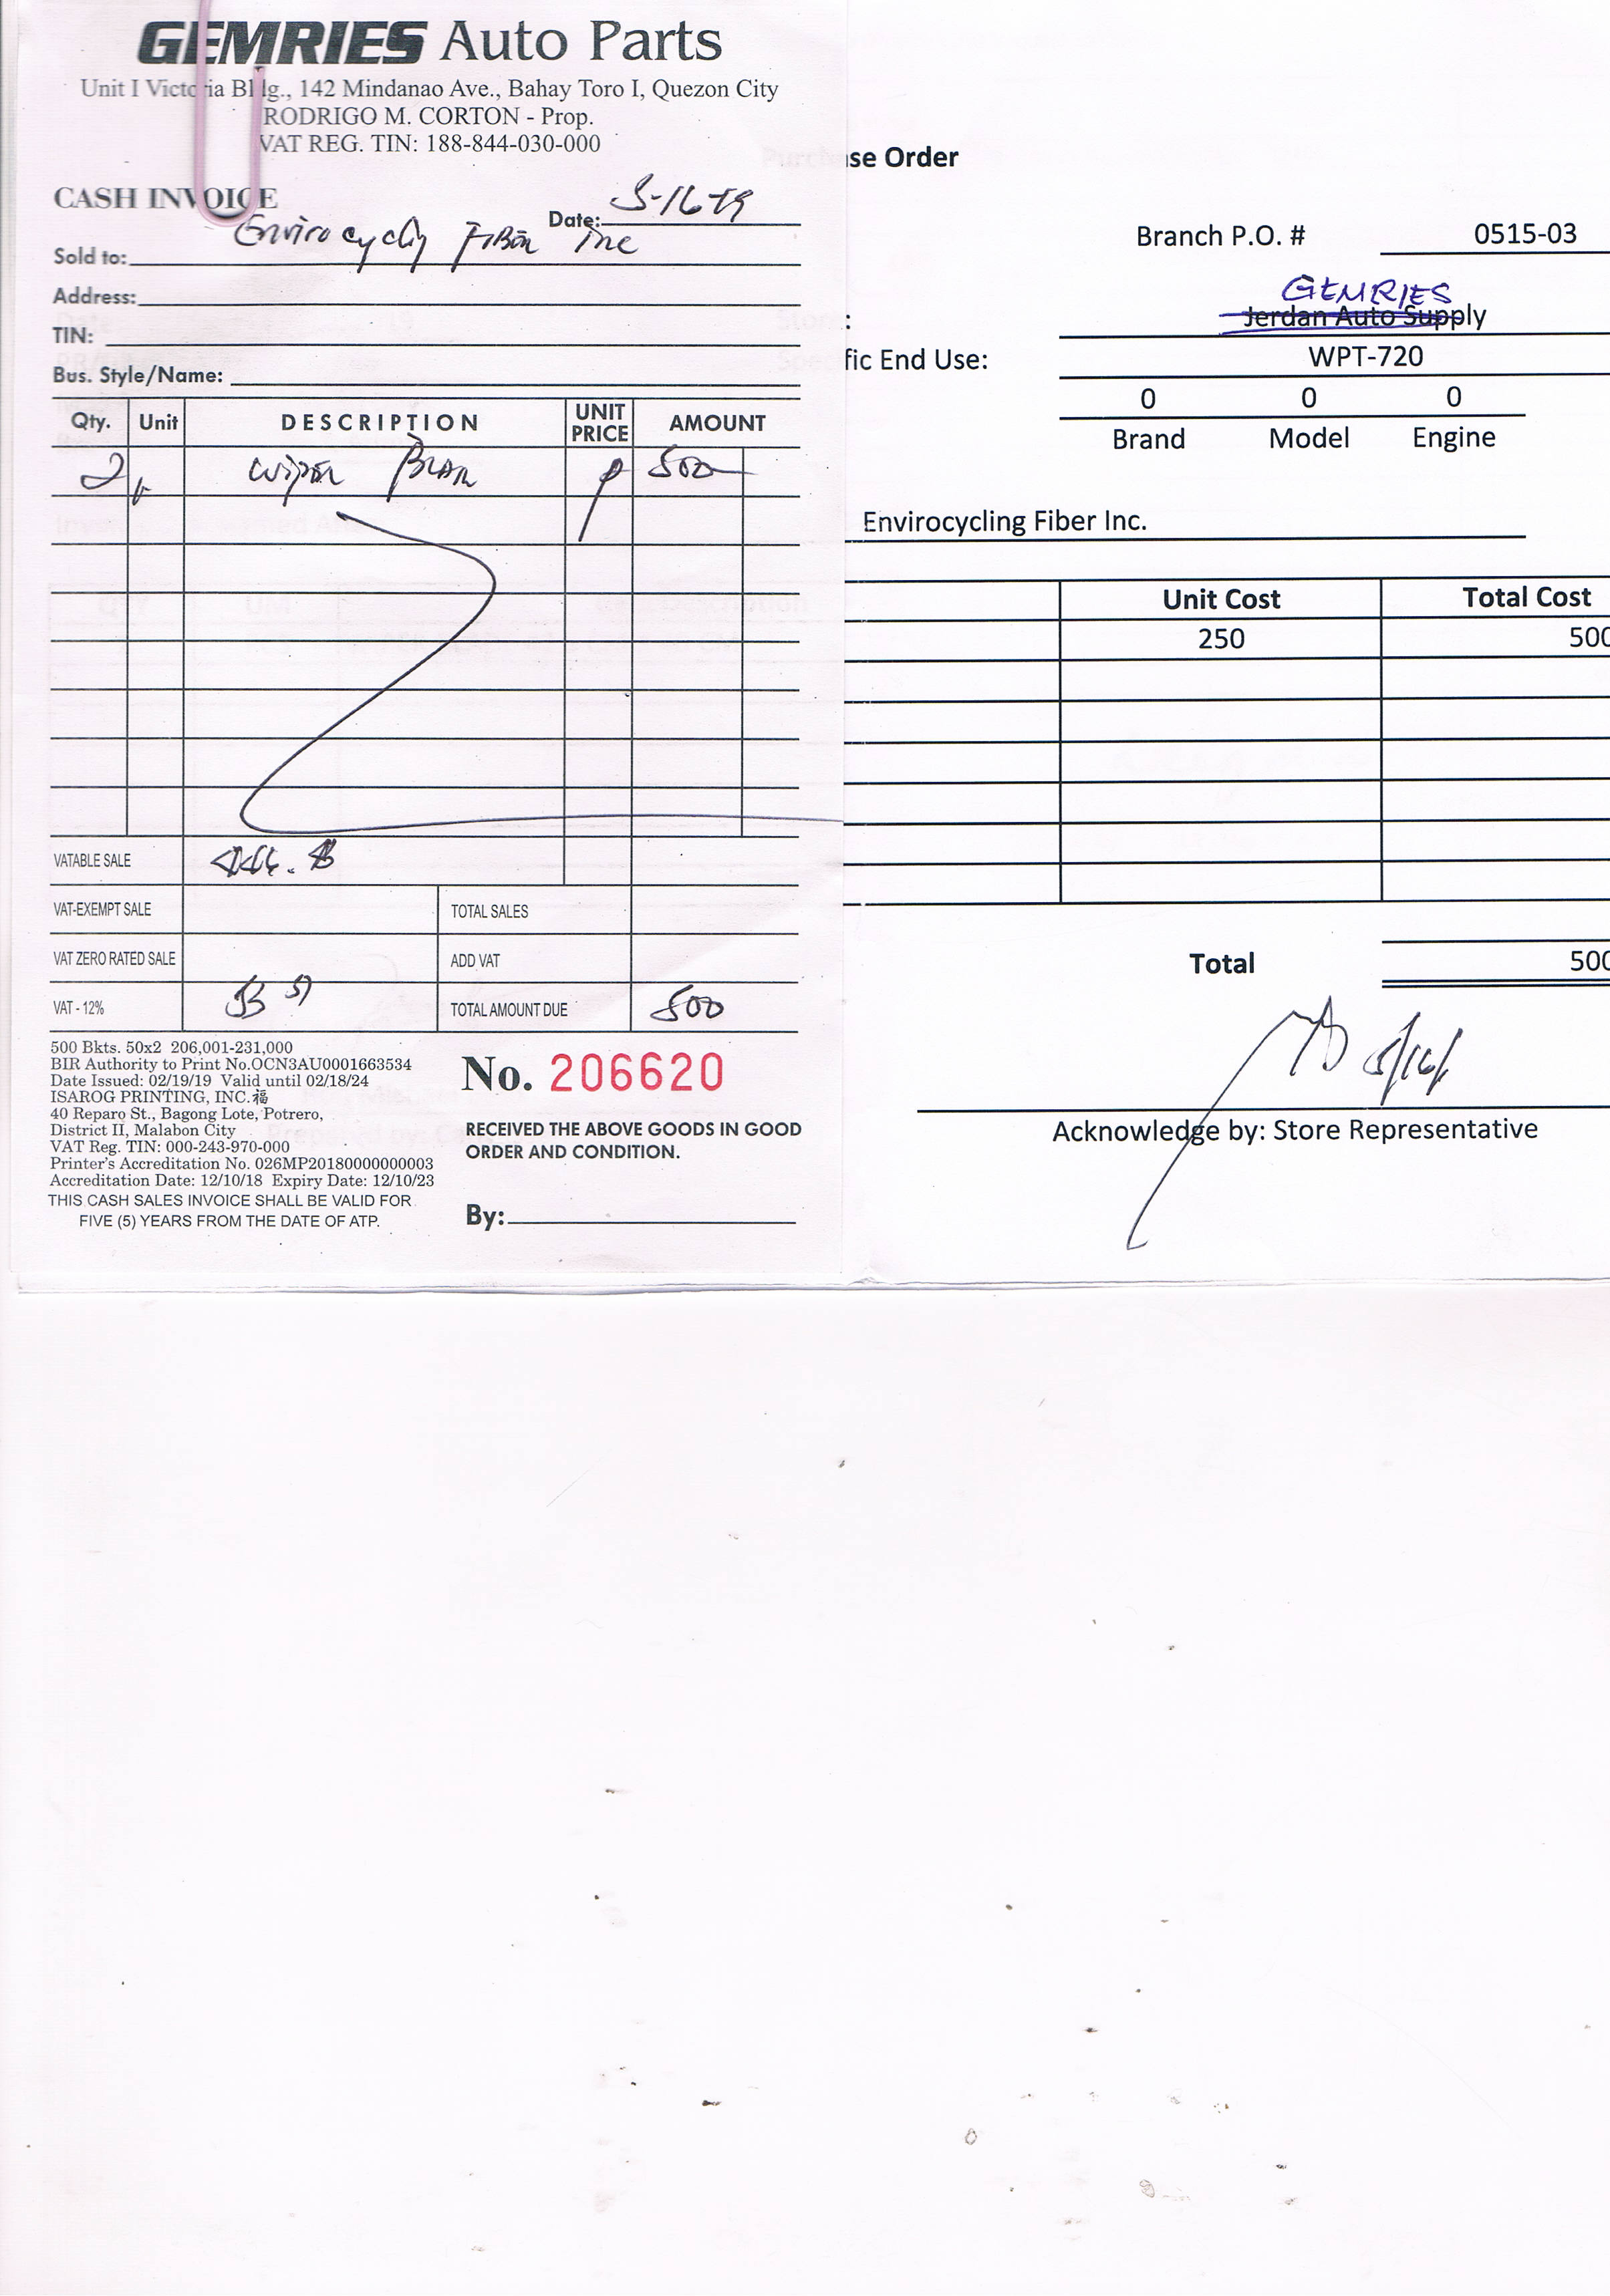 GEMRIES Auto Parts
Unit I Victoria Bldg., 142 Mindanao Ave., Bahay Toro I, Quezon City
RODRIGO M. CORTON - Prop.
VAT REG. TIN: 188-844-030-000
CASH INVOICE
Date: 5-16-19
Sold to: Envirocycling Fiber Inc
Address:
TIN:
Bus. Style/Name:
Qty. Unit DESCRIPTION UNIT PRICE AMOUNT
2 Wiper 500
VATABLE SALE
VAT-EXEMPT SALE TOTAL SALES
VAT ZERO RATED SALE ADD VAT
VAT - 12% 53 57 TOTAL AMOUNT DUE 500
500 Bkts. 50x2 206,001-231,000
BIR Authority to Print No.OCN3AU0001663534
Date Issued: 02/19/19 Valid until 02/18/24
ISAROG PRINTING, INC.福
40 Reparo St., Bagong Lote, Potrero,
District II, Malabon City
VAT Reg. TIN: 000-243-970-000
Printer's Accreditation No. 026MP20180000000003
Accreditation Date: 12/10/18 Expiry Date: 12/10/23
THIS CASH SALES INVOICE SHALL BE VALID FOR
FIVE (5) YEARS FROM THE DATE OF ATP.
No. 206620
RECEIVED THE ABOVE GOODS IN GOOD
ORDER AND CONDITION.
By:
se Order
Branch P.O. # 0515-03
GEMRIES
: Jerdan Auto Supply
fic End Use: WPT-720
0 0 0
Brand Model Engine
Envirocycling Fiber Inc.
Unit Cost Total Cost
250 500
Total 500
5/16/
Acknowledge by: Store Representative